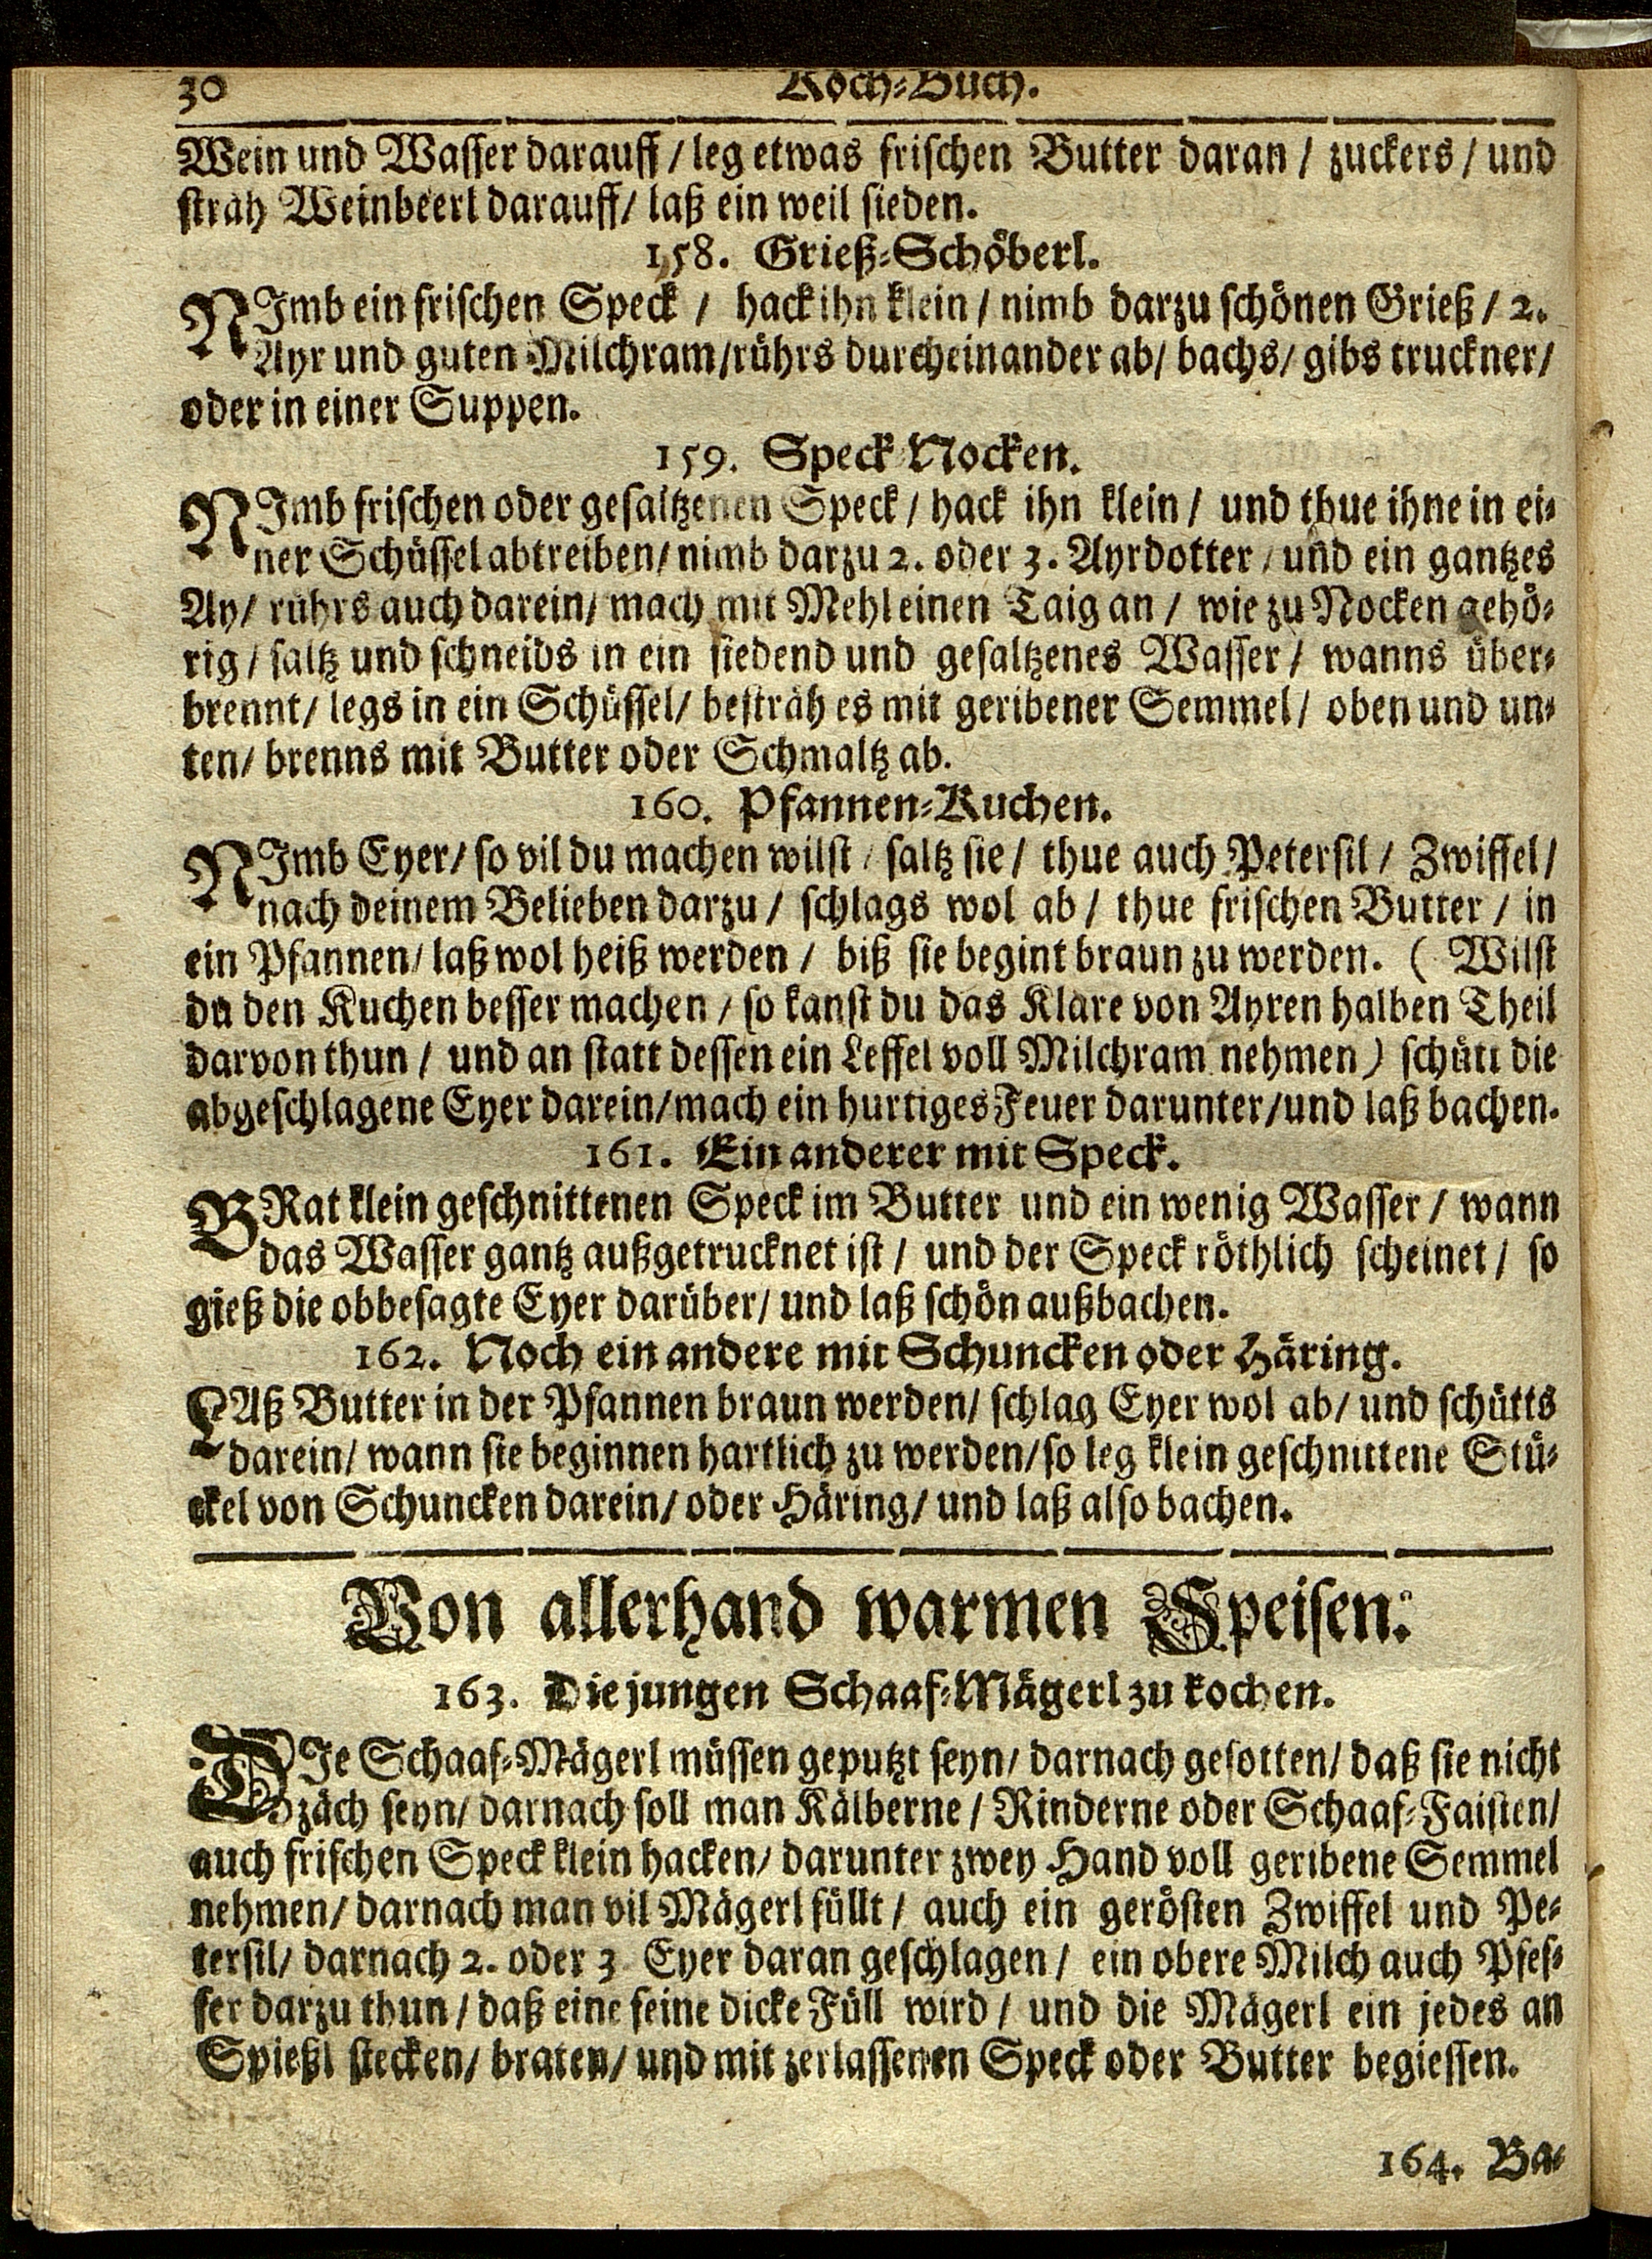 30 Koch-Buch.
Wein und Wasser darauff / leg etwas frischen Butter daran / zuckers / und
sträh Weinbeerl darauff / laß ein weil sieden.
158. Grieß-Schöberl.
NImb ein frischen Speck / hack ihn klein / nimb darzu schönen Grieß / 2.
Ayr und guten Milchram / rührs durcheinander ab / bachs / gibs truckner /
oder in einer Suppen.
159. Speck Nocken.
NImb frischen oder gesaltzenen Speck / hack ihn klein / und thue ihne in ei-
ner Schüssel abtreiben / nimb darzu 2. oder 3. Ayrdotter / und ein gantzes
Ay / rührs auch darein / mach mit Mehl einen Taig an / wie zu Nocken gehö-
rig / saltz und schneids in ein siedend und gesaltzenes Wasser / wanns über-
brennt / legs in ein Schüssel / besträh es mit geribener Semmel / oben und un-
ten / brenns mit Butter oder Schmaltz ab.
160. Pfannen-Kuchen.
NImb Eyer / so vil du machen wilst / saltz sie / thue auch Petersil / Zwiffel /
nach deinem Belieben darzu / schlags wol ab / thue frischen Butter / in
ein Pfannen / laß wol heiß werden / biß sie begint braun zu werden. ( Wilst
du den Kuchen besser machen / so kanst du das Klare von Ayren halben Theil
darvon thun / und an statt dessen ein Leffel voll Milchram nehmen ) schütt die
abgeschlagene Eyer darein / mach ein hurtiges Feuer darunter / und laß bachen.
161. Ein anderer mit Speck.
BRat klein geschnittenen Speck im Butter und ein wenig Wasser / wann
das Wasser gantz außgetrucknet ist / und der Speck röthlich scheinet / so
gieß die obbesagte Eyer darüber / und laß schön außbachen.
162. Noch ein andere mit Schuncken oder Häring.
LAß Butter in der Pfannen braun werden / schlag Eyer wol ab / und schütts
darein / wann sie beginnen hartlich zu werden / so leg klein geschnittene Stü-
ckel von Schuncken darein / oder Häring / und laß also bachen.
Von allerhand warmen Speisen.
163. Die jungen Schaaf-Mägerl zu kochen.
DIe Schaaf-Mägerl müssen geputzt seyn / darnach gesotten / daß sie nicht
zäch seyn / darnach soll man Kälberne / Rinderne oder Schaaf-Faisten /
auch frischen Speck klein hacken / darunter zwey Hand voll geribene Semmel
nehmen / darnach man vil Mägerl füllt / auch ein gerösten Zwiffel und Pe-
tersil / darnach 2. oder 3 Eyer daran geschlagen / ein obere Milch auch Pfef-
fer darzu thun / daß eine feine dicke Füll wird / und die Mägerl ein jedes an
Spießl stecken / braten / und mit zerlassenen Speck oder Butter begiessen.
164. Ba-